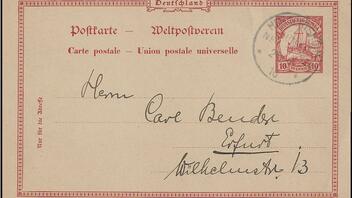 Deutschland
Postkarte — Weltpostverein
Carte postale — Union postale universelle
10 10
Nur für die Adresse
Herrn
Carl Bender
Erfurt
Wilhelmstr. 13